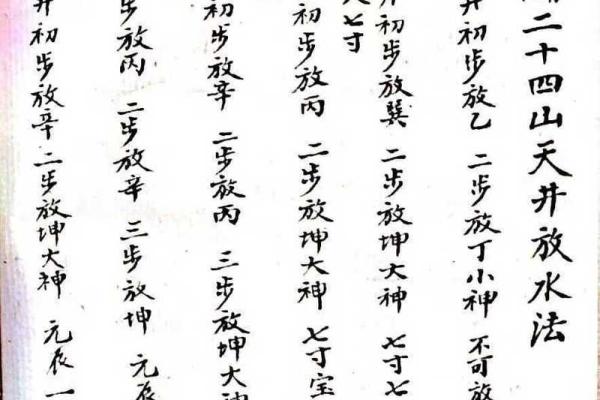 二十四山天井放水法
井初步放乙 二步放丁小神 不可放
井初步放巽 二步放坤大神 七寸七
七寸
初步放丙 二步放坤大神 七寸宝
初步放辛 二步放丙 三步放坤大神
步放丙 二步放辛 三步放坤 元辰
井初步放辛 二步放坤大神 元辰一